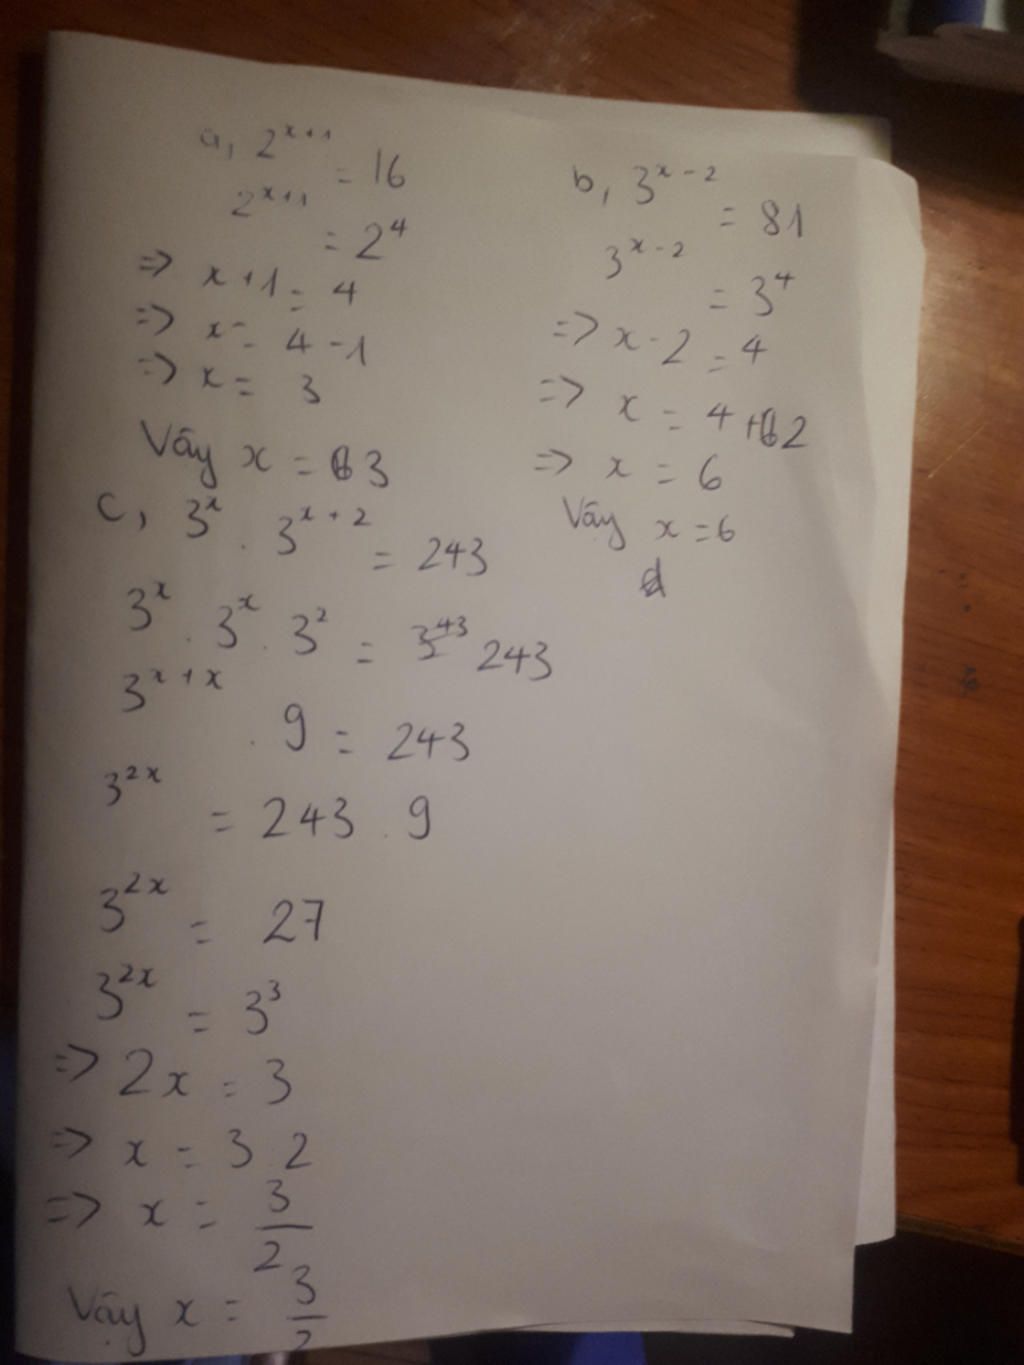 a, 2^{x+1} = 16
2^{x+1} = 2^4
=> x+1 = 4
=> x = 4 - 1
=> x = 3
Vây x = 3
b, 3^{x-2} = 81
3^{x-2} = 3^4
=> x - 2 = 4
=> x = 4 + 2
=> x = 6
Vây x = 6
d
c, 3^x . 3^{x+2} = 243
3^x . 3^x . 3^2 = 243
3^{x+x} . 9 = 243
3^{2x} = 243 . 9
3^{2x} = 27
3^{2x} = 3^3
=> 2x = 3
=> x = 3 2
=> x = 3/2
Vậy x = 3/2